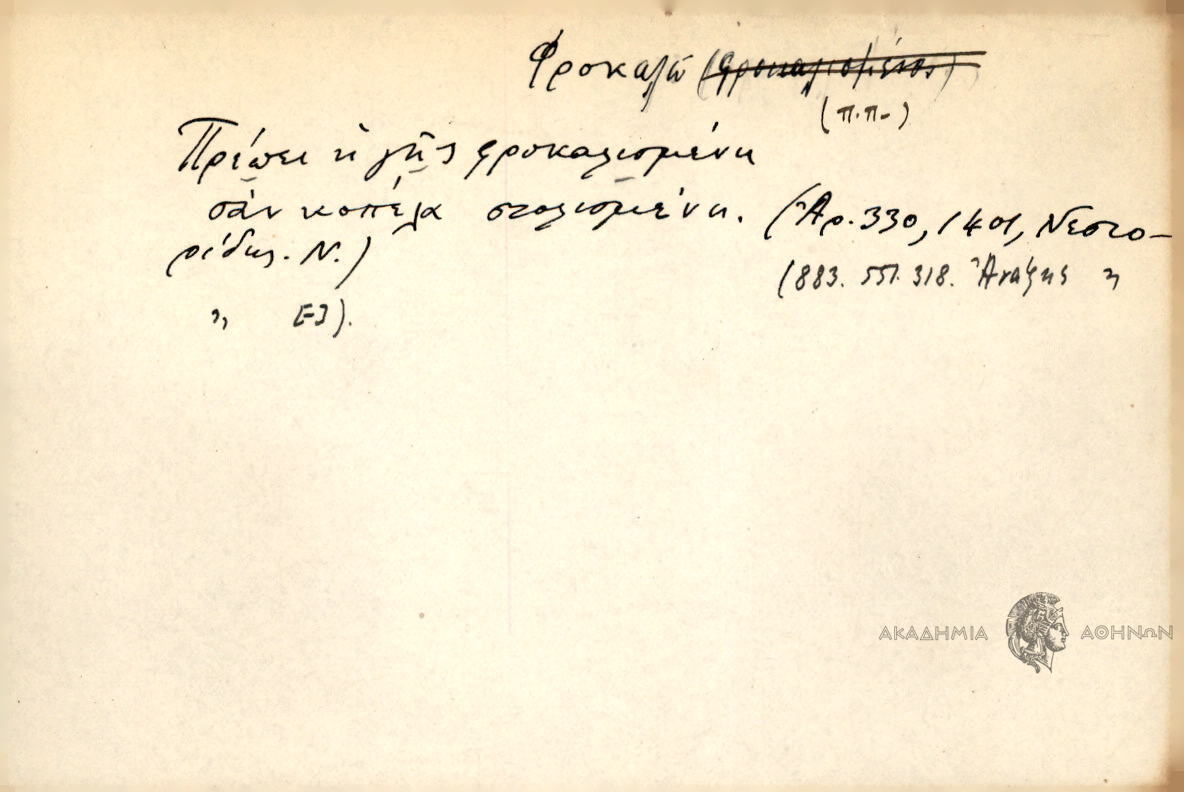 Φροκαλῶ (φροκαλισμένος)
(π.π-)
Πρέπει ἡ γῆς φροκαλισμένη
σὰν κοπέλα στολισμένη. (Ἀρ. 330, 1401, Νεστο-
ρίδης. Ν.)
(883. 551. 318. Ἀναξης "
" Ε-).
ΑΚΑΔΗΜΙΑ ΑΘΗΝΩΝ